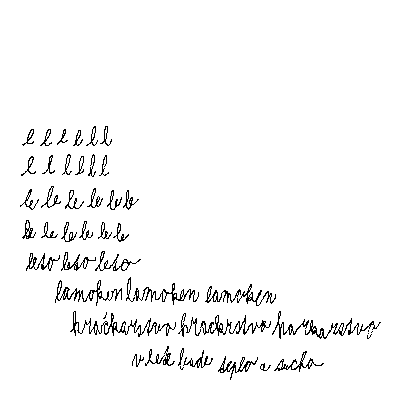 l l l l l l
l l l l l l
le le le le le le
le le le le le le
leto leto leto
lamoken lamoken lamoken
hračkarstvo hrackrstvo harkarstvo
v lete bude teplo a sucho